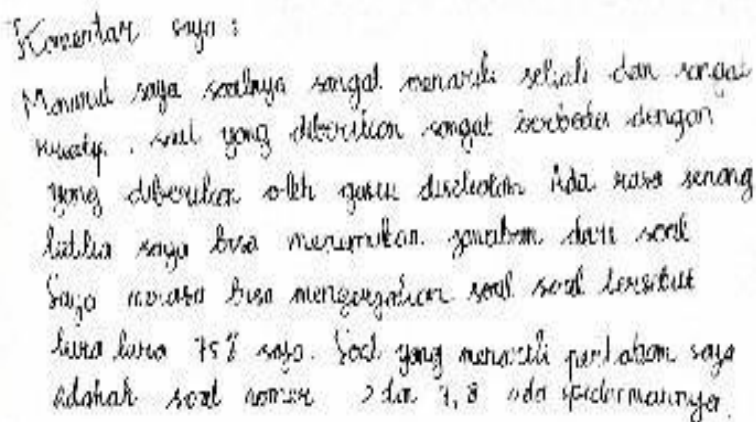 Komentar saya :
Menurut saya soalnya sangat menarik sekali dan sangat
kreatif. soal yang diberikan sangat berbeda dengan
yang diberikan oleh guru disekolah Ada rasa senang
ketika saya bisa menemukan jawaban dari soal
Saya merasa bisa mengerjakan soal soal tersebut
kira kira 75% saja. Soal yang menarik perhatian saya
adalah soal nomer 2 dan 7, 8 ada